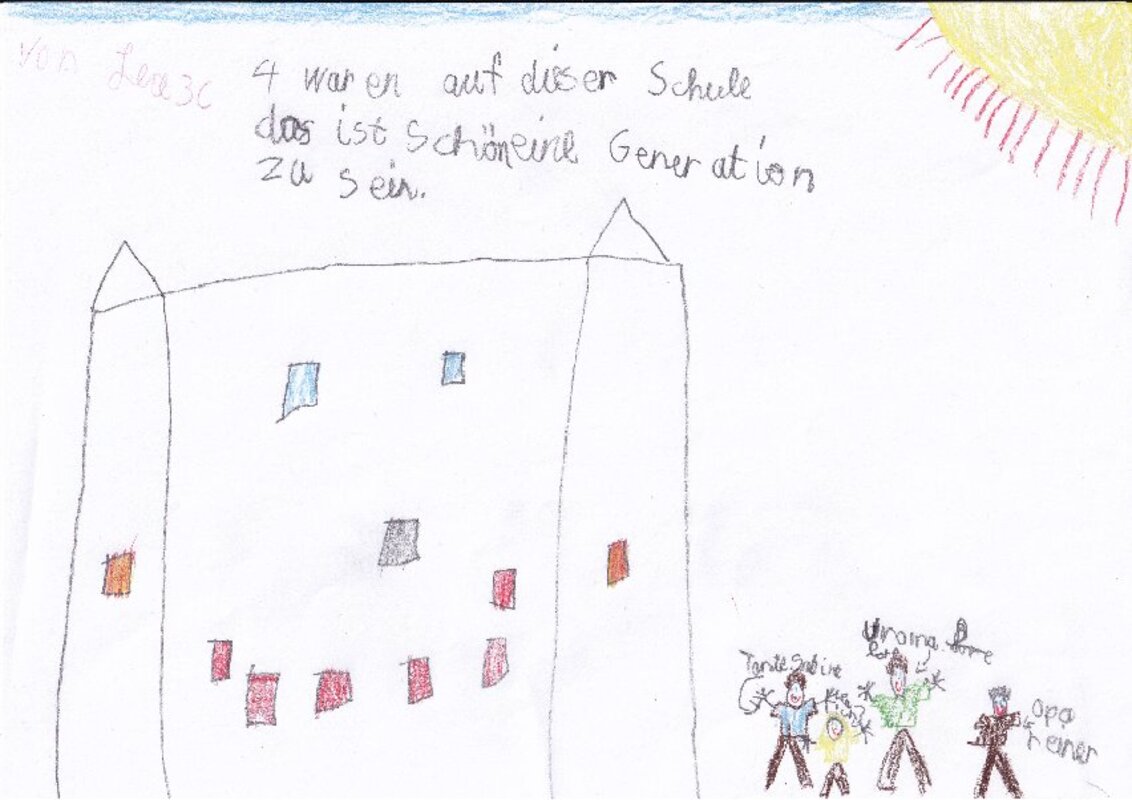 von Lea 3c
4 waren auf diser Schule
das ist schön eine Generation
zu sein.
Tante Sabine
ich
Uroma
Opa
reiner